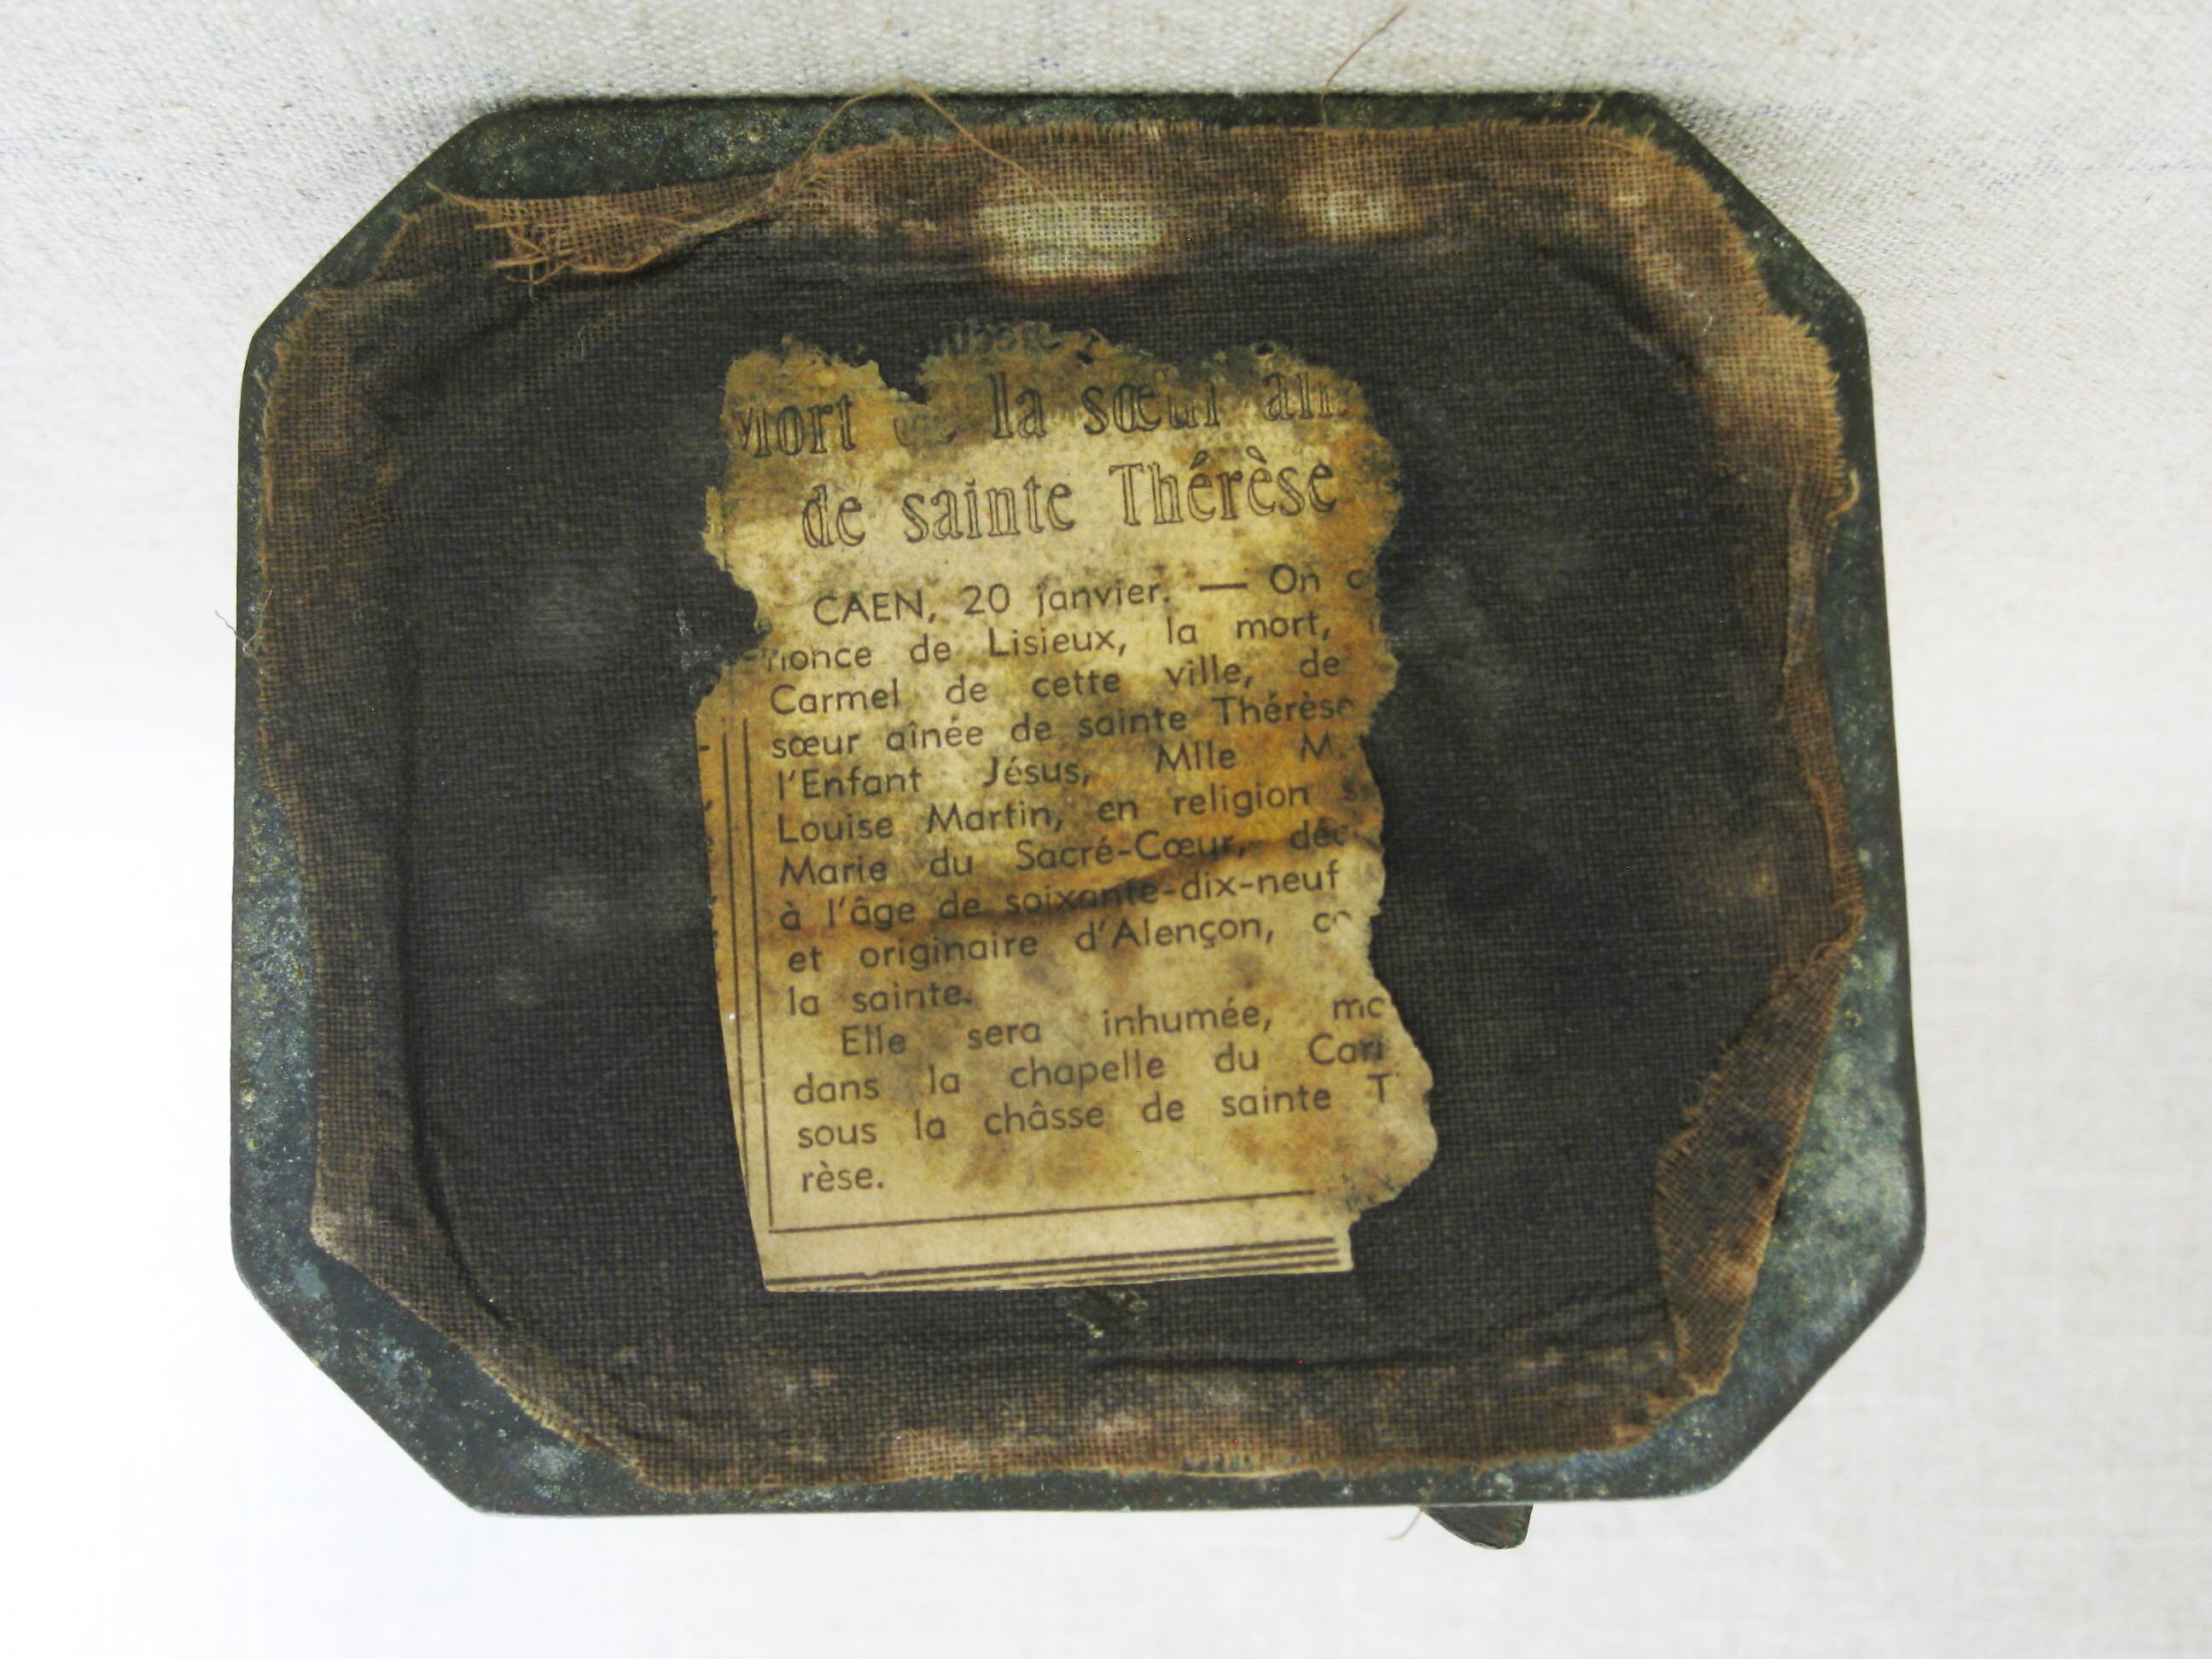 Mort de la sœur
de sainte Thérèse
CAEN, 20 janvier. — On
nonce de Lisieux, la mort,
Carmel de cette ville, de
sœur aînée de sainte Thérèse
l'Enfant Jésus, Mlle M
Louise Martin, en religion
Marie du Sacré-Cœur,
à l'âge de soixante-dix-neuf
et originaire d'Alençon,
la sainte.
Elle sera inhumée,
dans la chapelle du
sous la châsse de sainte T
rèse.